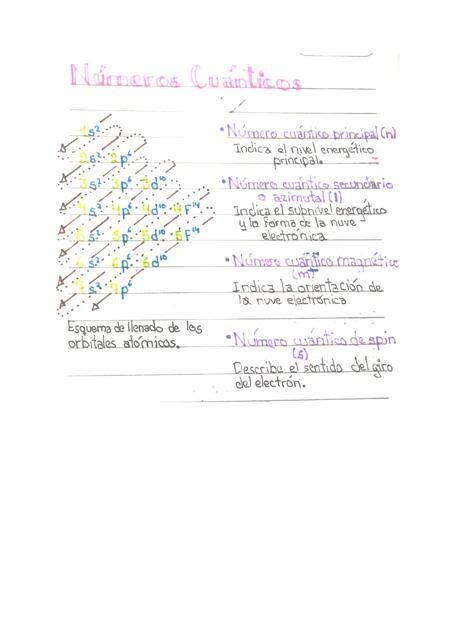 Números Cuánticos
1s²
2s² 2p⁶
3s² 3p⁶ 3d¹⁰
4s² 4p⁶ 4d¹⁰ 4F¹⁴
5s² 5p⁶ 5d¹⁰ 5F¹⁴
6s² 6p⁶ 6d¹⁰
7s² 7p⁶
Esquema de llenado de los
orbitales atómicos.
• Número cuántico principal (n)
Indica el nivel energético
principal.
• Número cuántico secundario
o azimutal (l)
Indica el subnivel energético
y la forma de la nuve
electrónica
• Número cuántico magnético
(m)
Indica la orientación de
la nuve electrónica
• Número cuántico de spin
(s)
Describe el sentido del giro
del electrón.